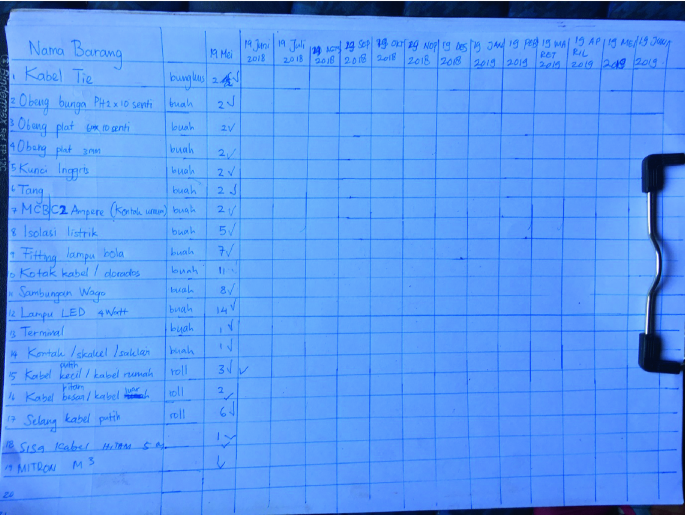 Nama Barang 19 Mei 19 Juni 2018 19 Juli 2018 19 SEP 2018 19 OKt 2018 19 NOP 2018 19 DES 2018 19 JAN 2019 19 FEB 2019 19 MARET 2019 19 APRIL 2019 19 MEI 2019 19 JUNI 2019
1 Kabel Tie bungkus 2 ✓
2 Obeng bunga PH2 x 10 senti buah 2 ✓
3 Obeng plat 6mm x 10 senti buah 2 ✓
4 Obeng plat 3mm buah 2 ✓
5 Kunci Inggris buah 2 ✓
6 Tang buah 2 ✓
7 MCB C2 Ampere (Kontak umum) buah 2 ✓
8 Isolasi listrik buah 5 ✓
9 Fitting lampu bola buah 7 ✓
10 Kotak kabel / dorados buah 11
11 Sambungan Wago buah 8 ✓
12 Lampu LED 4 Watt buah 14 ✓
13 Terminal buah 1 ✓
14 Kontak / skakel / saklar buah 1 ✓
15 Kabel putih kecil / kabel rumah roll 3 ✓ ✓
16 Kabel hitam besar / kabel luar roll 2 ✓
17 Selang kabel putih roll 6 ✓
18 SISA Kabel HITAM 5 M 1 ✓
19 MITRON M3
20